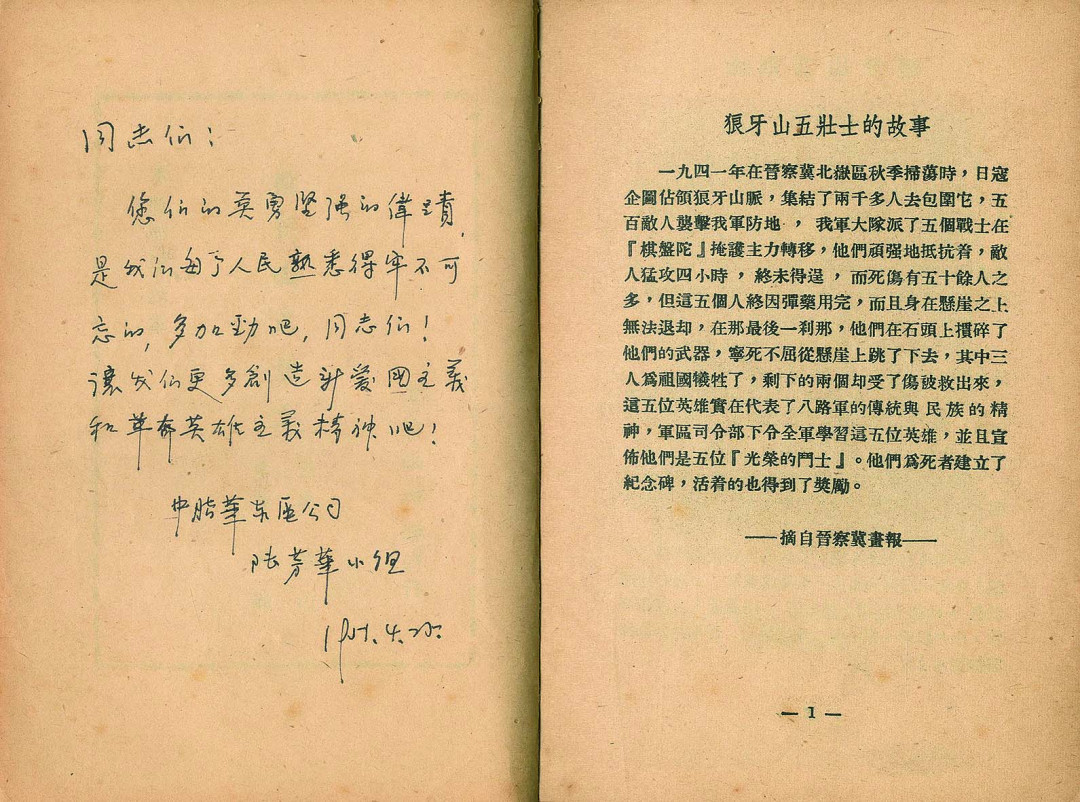 同志们：
您们的英勇坚强的偉蹟，
是我们每个人民熟悉得牢不可
忘的，多加勁吧，同志们！
讓我们更多創造新愛國主義
和革命英雄主義精神吧！
華东區公司
陆芳華小组
狼牙山五壯士的故事
一九四一年在晉察冀北嶽區秋季掃蕩時，日寇
企圖佔領狼牙山脈，集結了兩千多人去包圍它，五
百敵人襲擊我軍防地，我軍大隊派了五個戰士在
『棋盤陀』掩護主力轉移，他們頑强地抵抗着，敵
人猛攻四小時，終未得逞，而死傷有五十餘人之
多，但這五個人終因彈藥用完，而且身在懸崖之上
無法退却，在那最後一刹那，他們在石頭上摜碎了
他們的武器，寧死不屈從懸崖上跳了下去，其中三
人爲祖國犧牲了，剩下的兩個却受了傷被救出來，
這五位英雄實在代表了八路軍的傳統與民族的精
神，軍區司令部下令全軍學習這五位英雄，並且宣
佈他們是五位『光榮的鬥士』。他們爲死者建立了
紀念碑，活着的也得到了獎勵。
——摘自晉察冀畫報——
— 1 —